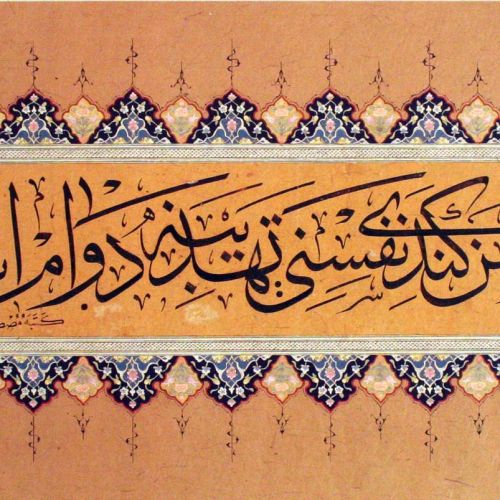 كندى نفسنى تهذيبنه دوام
كتبه